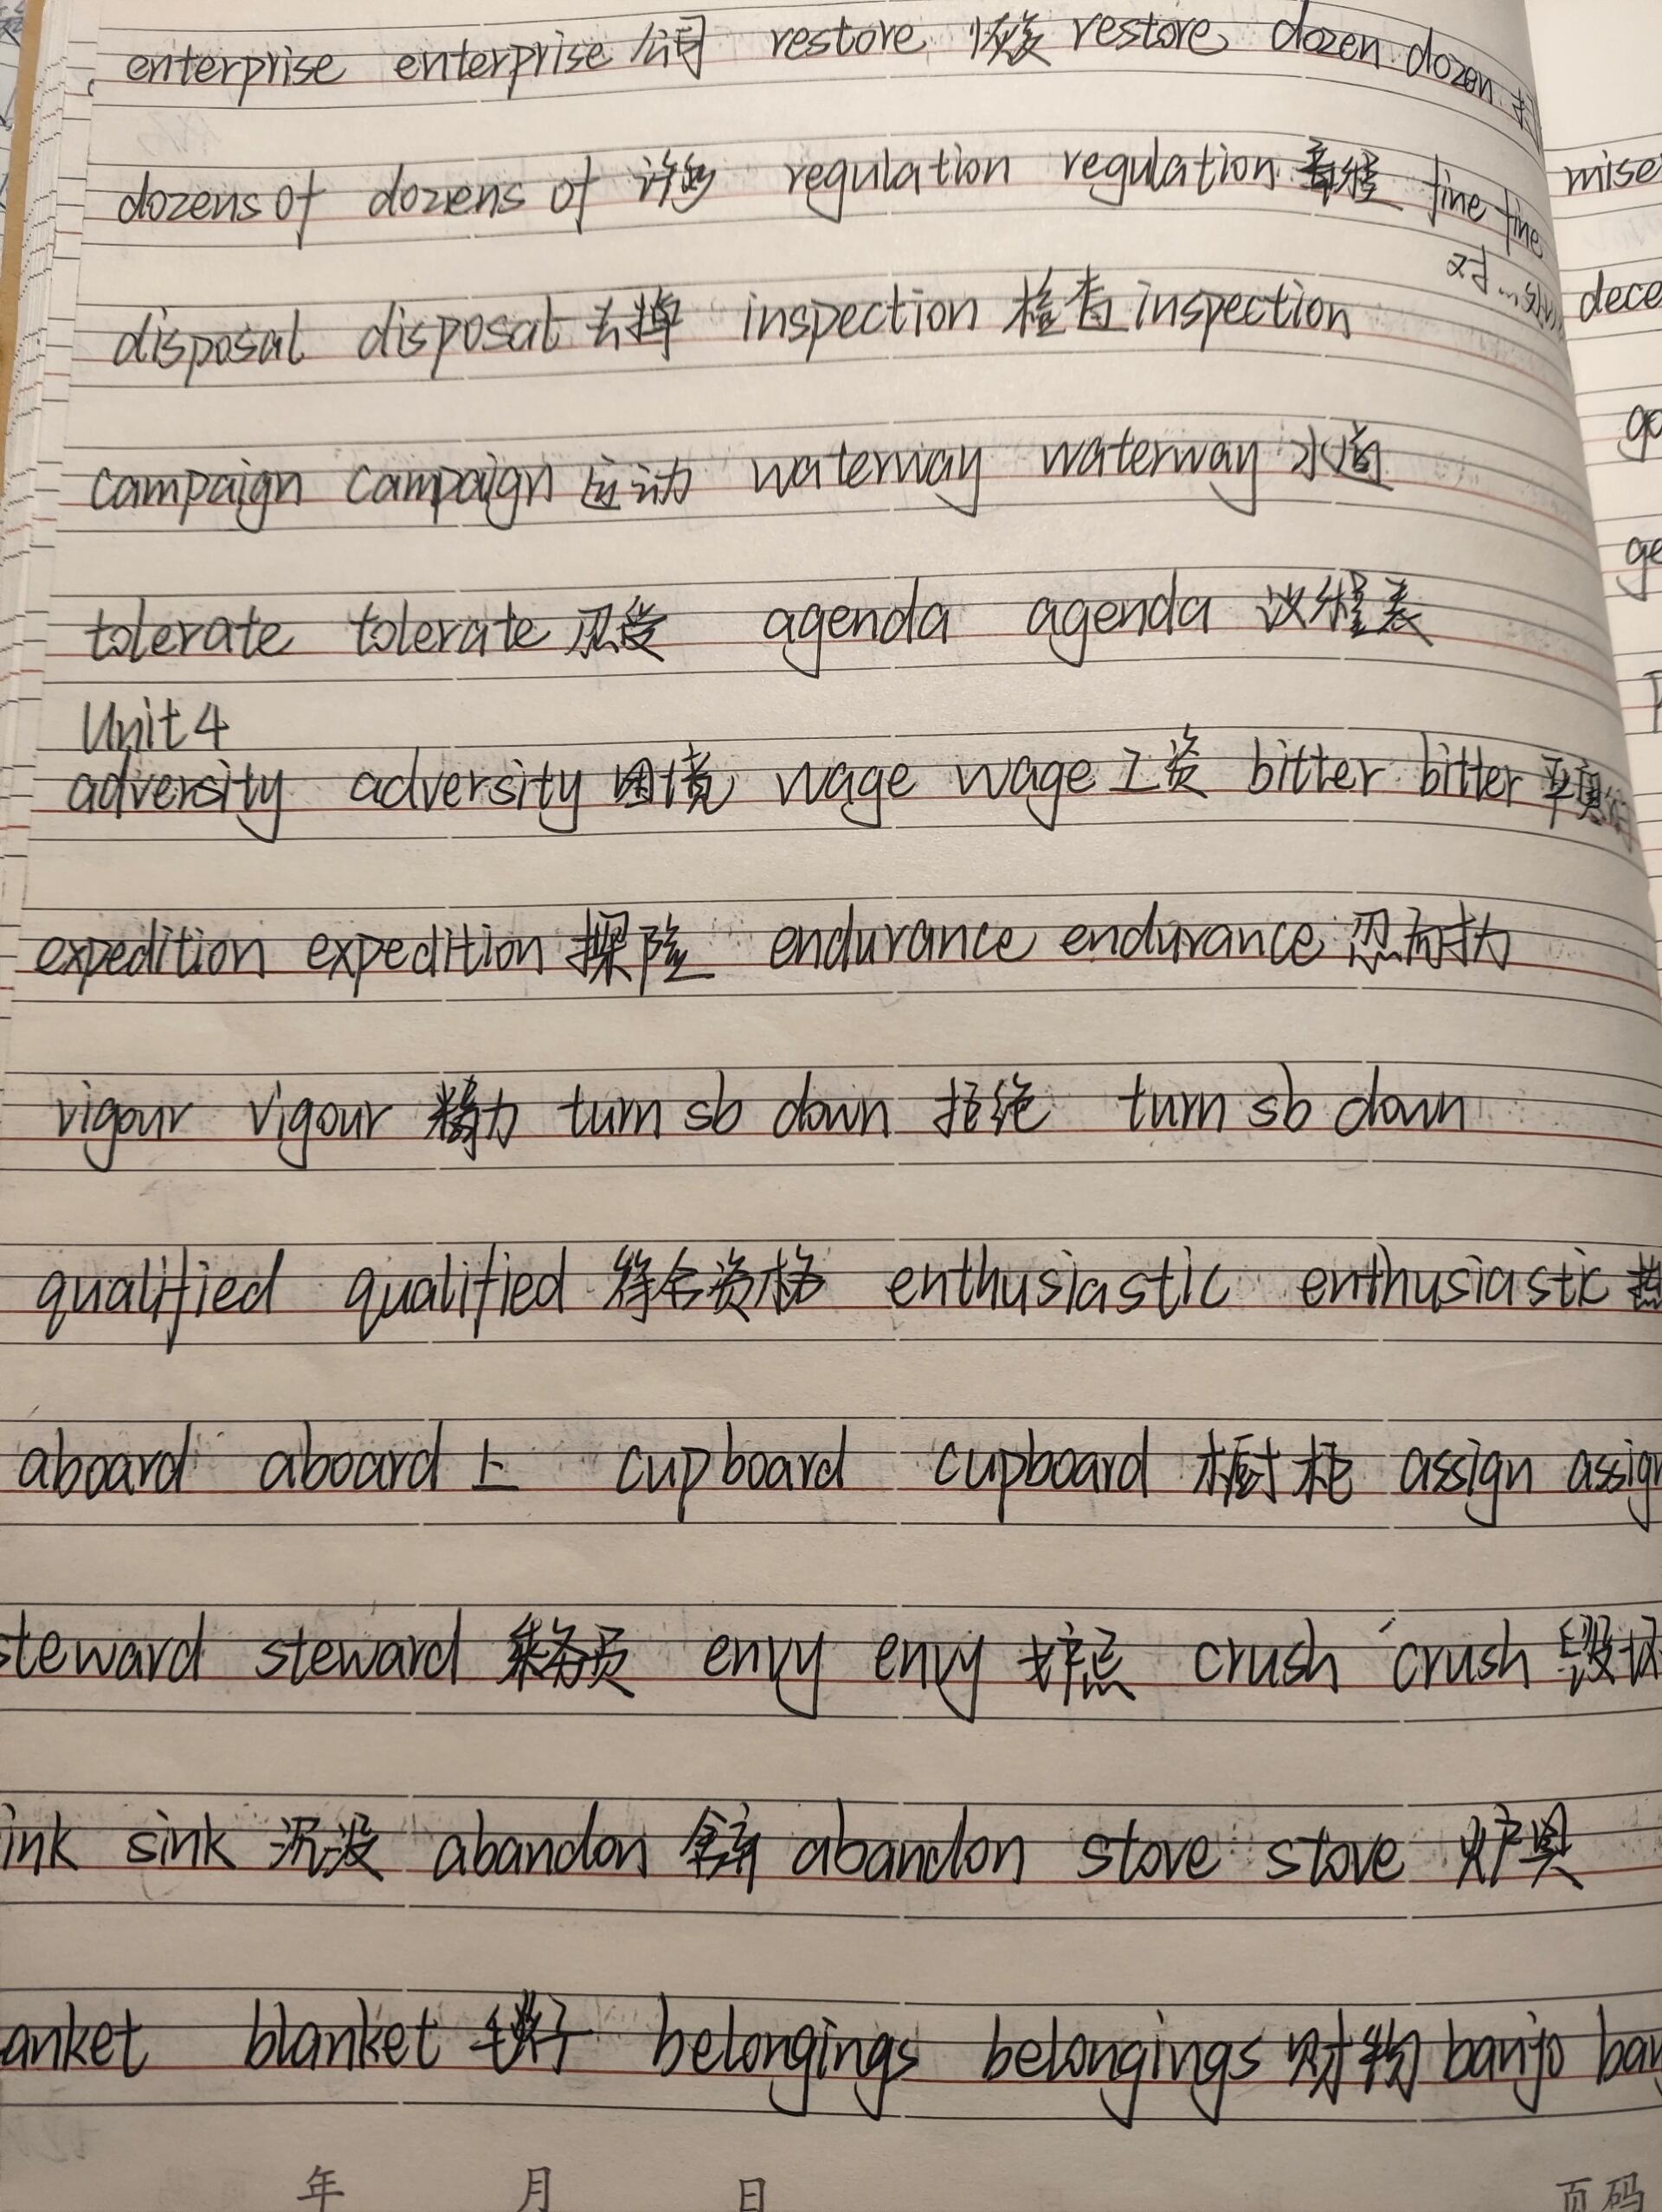 enterprise enterprise 公司 restore 恢复 restore dozen dozen
dozens of dozens of 许多 regulation regulation 章程 fine fine
对...
disposal disposal 去掉 inspection 检查 inspection
campaign campaign 运动 waterway waterway 水道
tolerate tolerate 忍受 agenda agenda 议程表
Unit 4
adversity adversity 困境 wage wage 工资 bitter bitter
expedition expedition 探险 endurance endurance 忍耐力
vigour vigour 精力 turn sb down 拒绝 turn sb down
qualified qualified 符合资格 enthusiastic enthusiastic 热
aboard aboard 上 cupboard cupboard 橱柜 assign assign
steward steward 乘务员 envy envy crush crush 毁坏
ink sink 沉没 abandon 舍弃 abandon stove stove 炉具
anket blanket 毯子 belongings belongings 财物 banjo ban
年 月 日 页码
mise
dece
go
ge